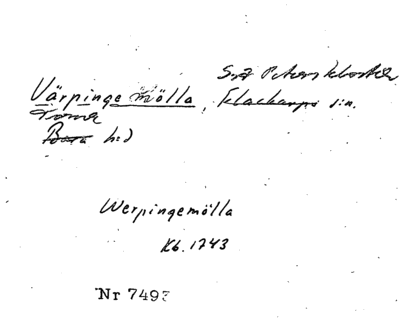 S:t Peters kloster
Värpinge mölla, s:n.
Torna
Bara h:d
Werpingemölla
Kb. 1743
Nr 7493